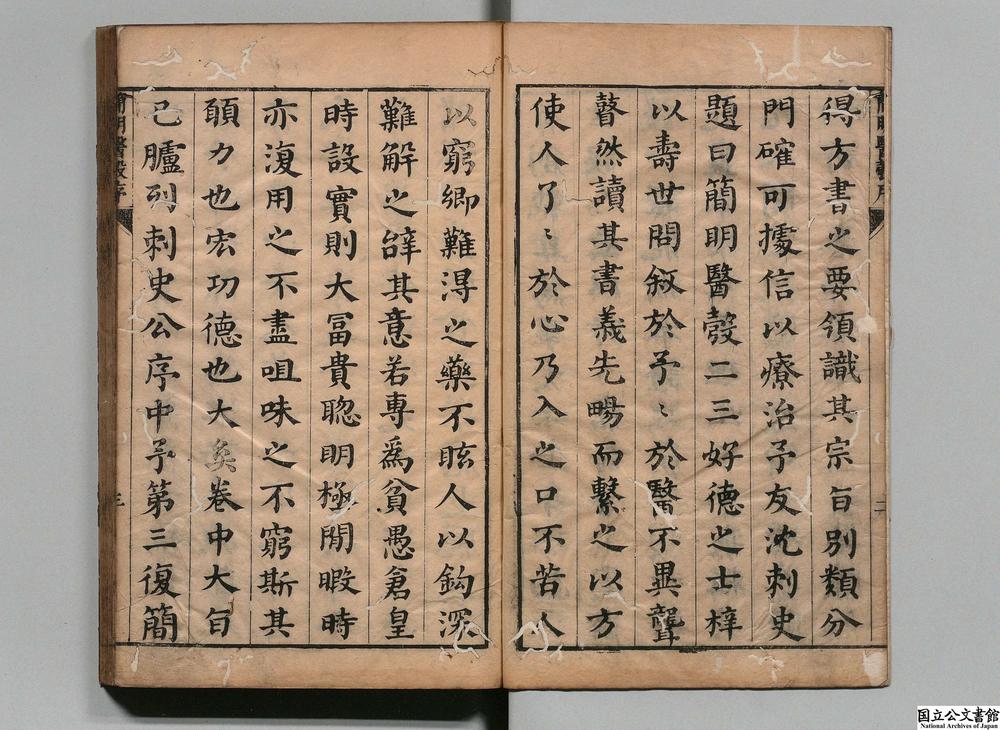 得方書之要領識其宗旨別類分
門確可據信以療治予友沈刺史
題曰簡明醫彀二三好德之士梓
以壽世問敘於予〻於醫不異聾
瞽然讀其書義先暢而繫之以方
使人了〻於心乃入之口不苦人
以窮鄉難淂之藥不眩人以鈎深
難解之辭其意若專為貧愚倉皇
時設實則大冨貴聰明極閒暇時
亦復用之不盡咀味之不窮斯其
願力也宏功德也大矣卷中大旨
已臚列刺史公序中予第三復簡
簡明醫彀序
二
簡明醫彀序
三
国立公文書館
National Archives of Japan